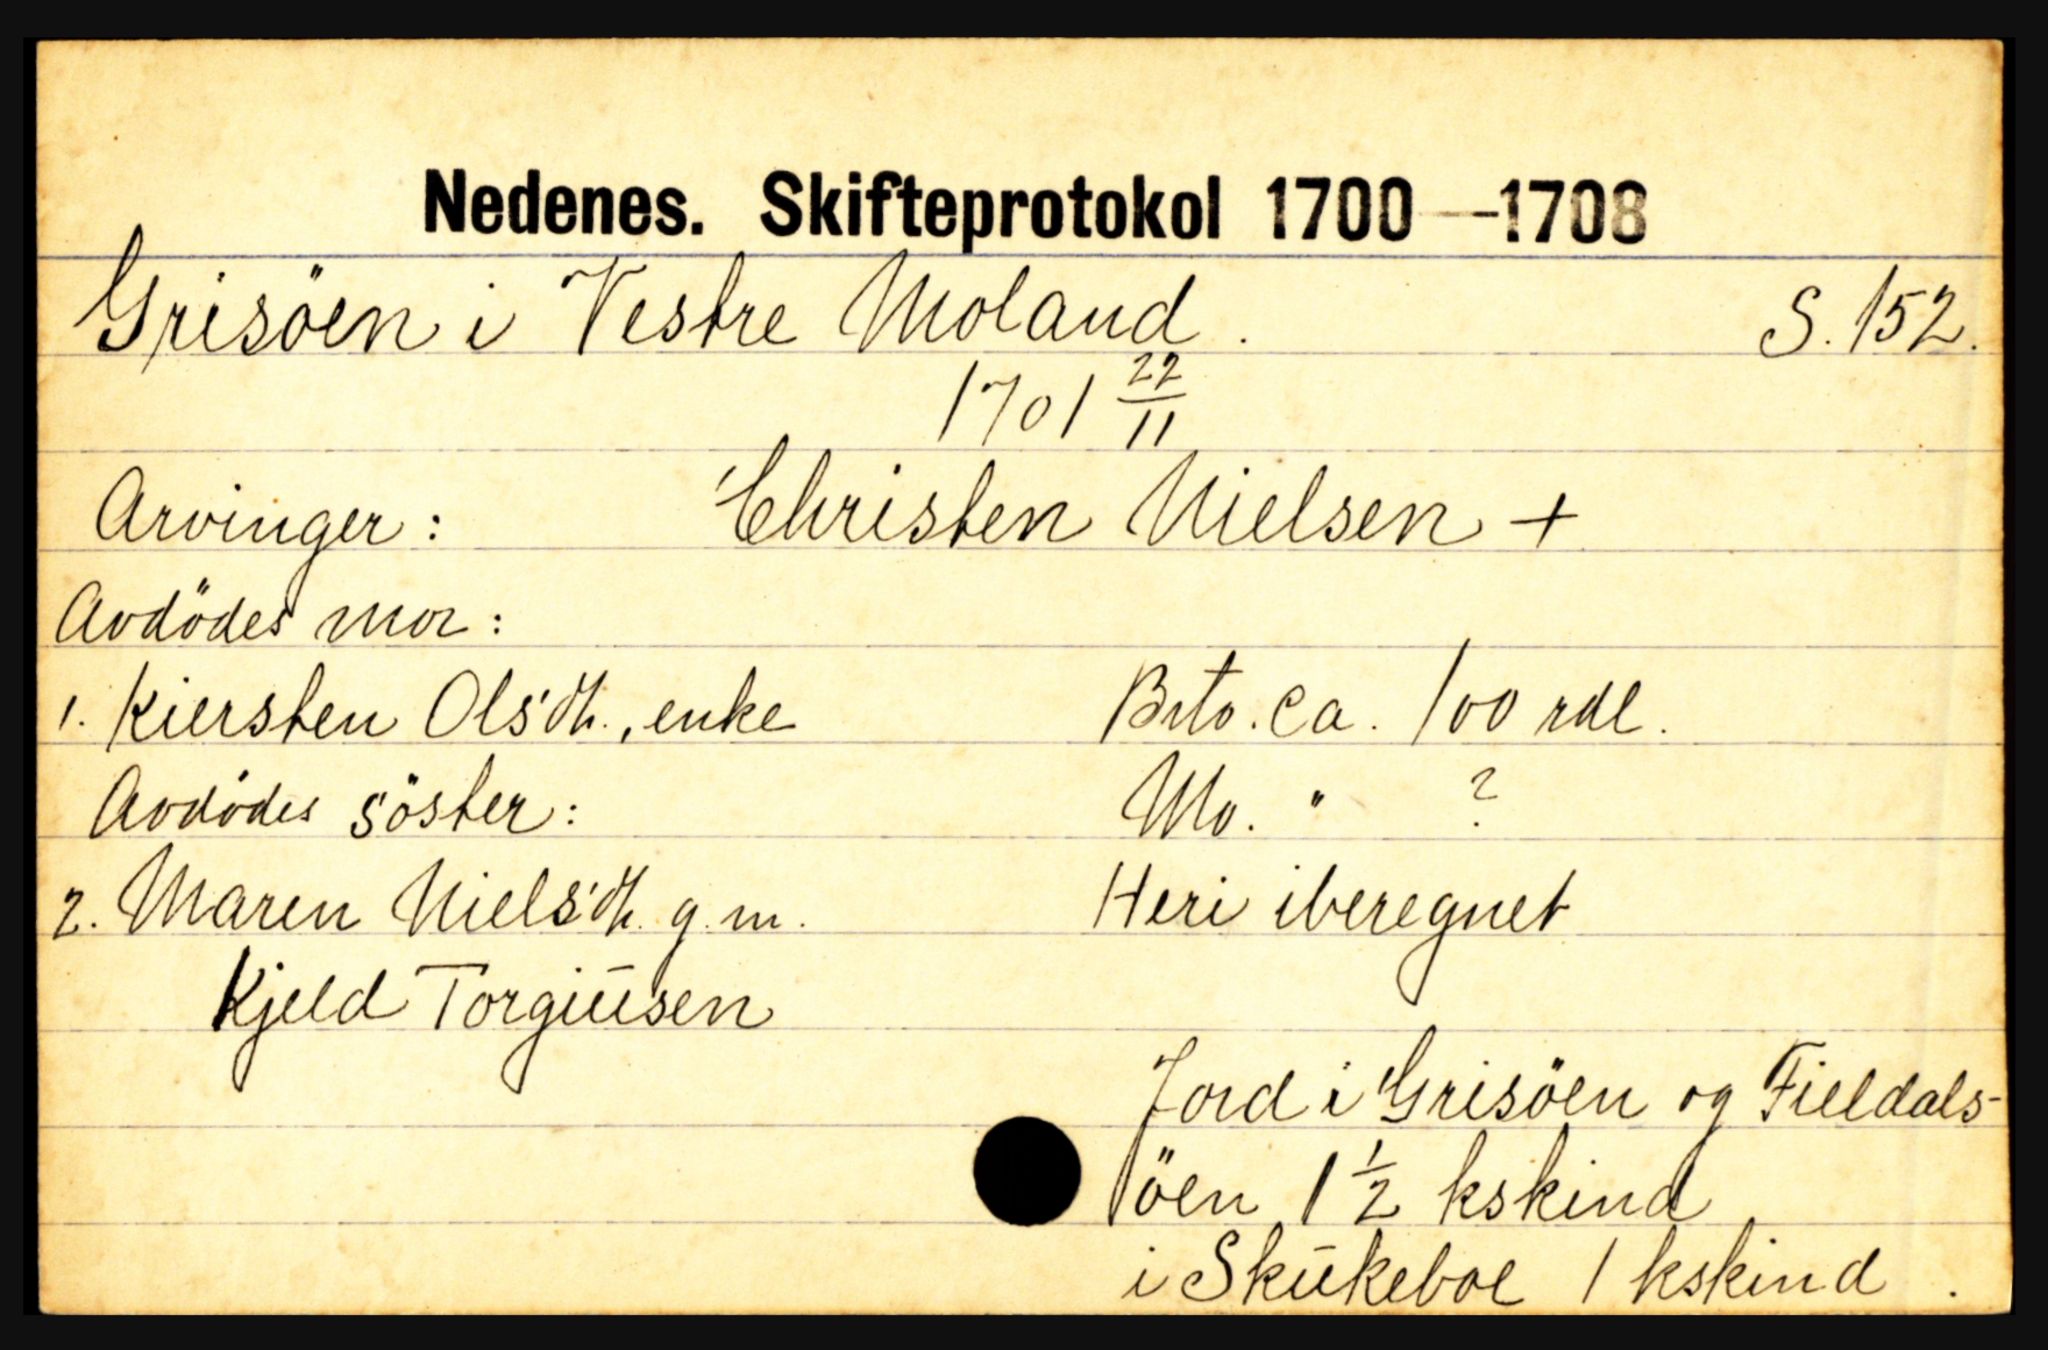 Nedenes. Skifteprotokol 1700—1708
Grisöen i Vestre Moland. S. 152.
1701 22/11
Arvinger: Christen Nielsen +
Avdödes mor:
1. Kiersten Olsdtr., enke Brto. ca. 100 rdl.
Avdödes söster: No. " ?
2. Maren Nielsdtr. g. m. Heri iberegnet
Kjeld Torgiusen
Jord i Grisöen og Fieldals-
öen 1 1/2 kskind
i Skukeboe 1 kskind.